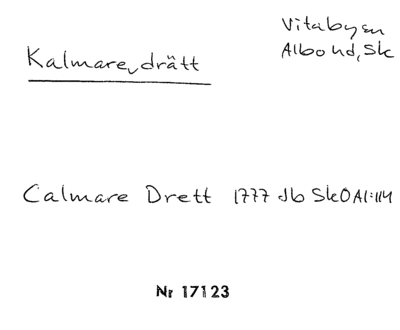 Vitabyen
Albo hd, Sk
Kalmare drätt
Calmare Drett 1777 Jb SkOA1:114
Nr 17123